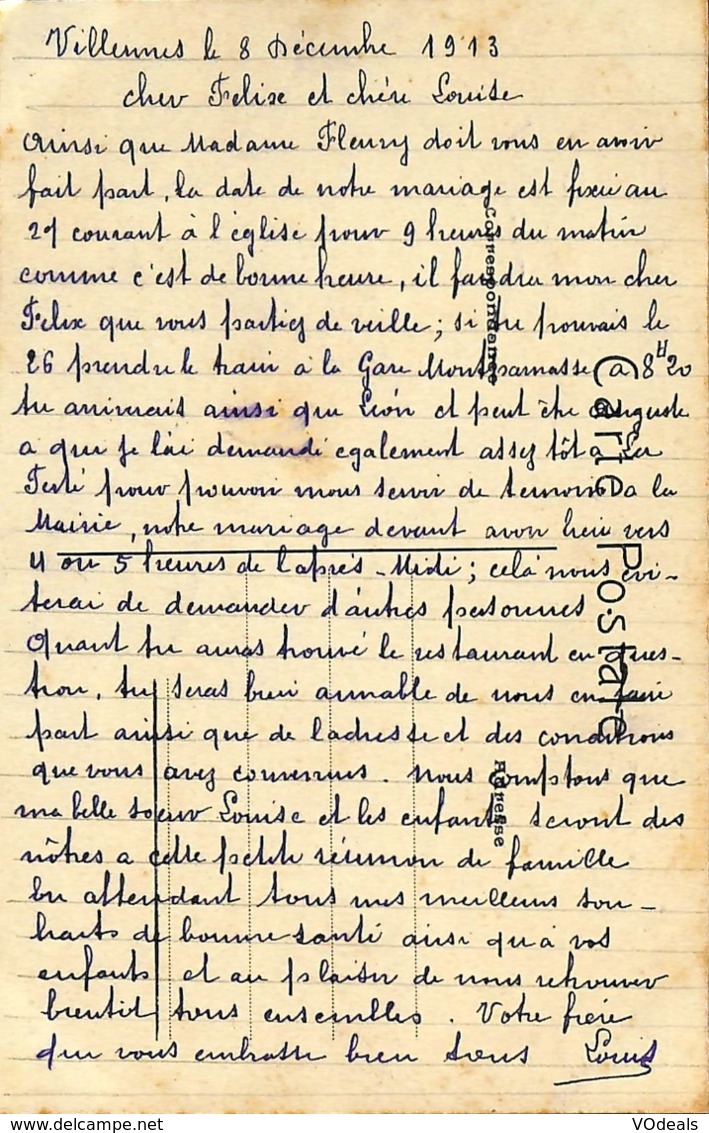 Villennes le 8 Décembre 1913
cher Felixe et chère Louise
Ainsi que Madame Fleury doit vous en avoir
fait part, la date de notre mariage est fixée au
27 courant à l'église pour 9 heures du matin
comme c'est de bonne heure, il faudra mon cher
Felix que vous partiez de veille; si tu pouvais le
26 prendre le train à la Gare Montparnasse a 8H20
tu arriverais ainsi que Léon et peut être Auguste
a qui je l'ai demandé egalement assez tôt a La
Ferté pour pouvoir nous servir de temoins a la
Mairie, notre mariage devant avoir lieu vers
4 ou 5 heures de l'après-Midi; celà nous évi-
terai de demander d'autres personnes
Quant tu auras trouvé le restaurant en ques-
tion, tu seras bien aimable de nous en faire
part ainsi que de l'adresse et des conditions
que vous avez convenues. Nous comptons que
ma belle soeur Louise et les enfants seront des
nôtres a cette petite réunion de famille
En attendant tous mes meilleurs sou-
haits de bonne santé ainsi qu'à vos
enfants et au plaisir de nous retrouver
bientôt tous ensembles. Votre frère
qui vous embrasse bien tous Louis
Correspondance
Carte Postale
Adresse
VOdeals